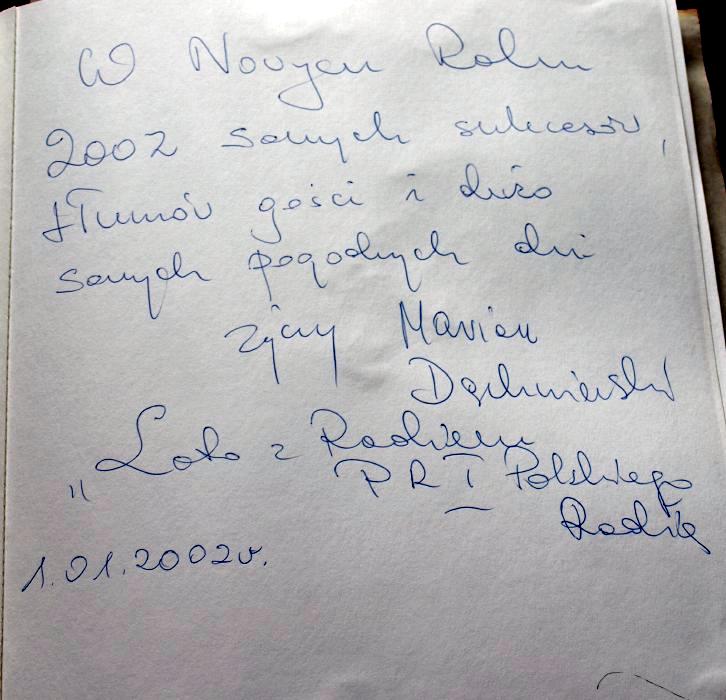 W Nowym Roku
2002 samych sukcesów,
tłumów gości i dużo
samych pogodnych dni
życzy Marian
„Lato z Radiem
PR I Polskiego
Radia
1.01.2002r.